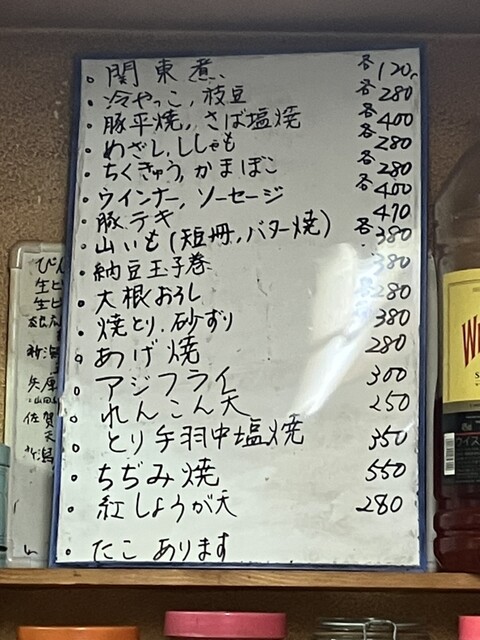 関東煮 各120
冷やっこ,枝豆 各280
豚平焼,さば塩焼 各400
めざし,ししゃも 各280
ちくきゅう,かまぼこ 280
ウインナー,ソーセージ 各400
豚テキ 470
山いも(短冊,バター焼) 各380
納豆玉子巻 380
大根おろし 280
焼とり.砂ずり 各380
あげ焼 280
アジフライ 300
れんこん天 250
とり手羽中塩焼 350
ちぢみ焼 550
紅しょうが天 280
たこ あります
兵庫
佐賀